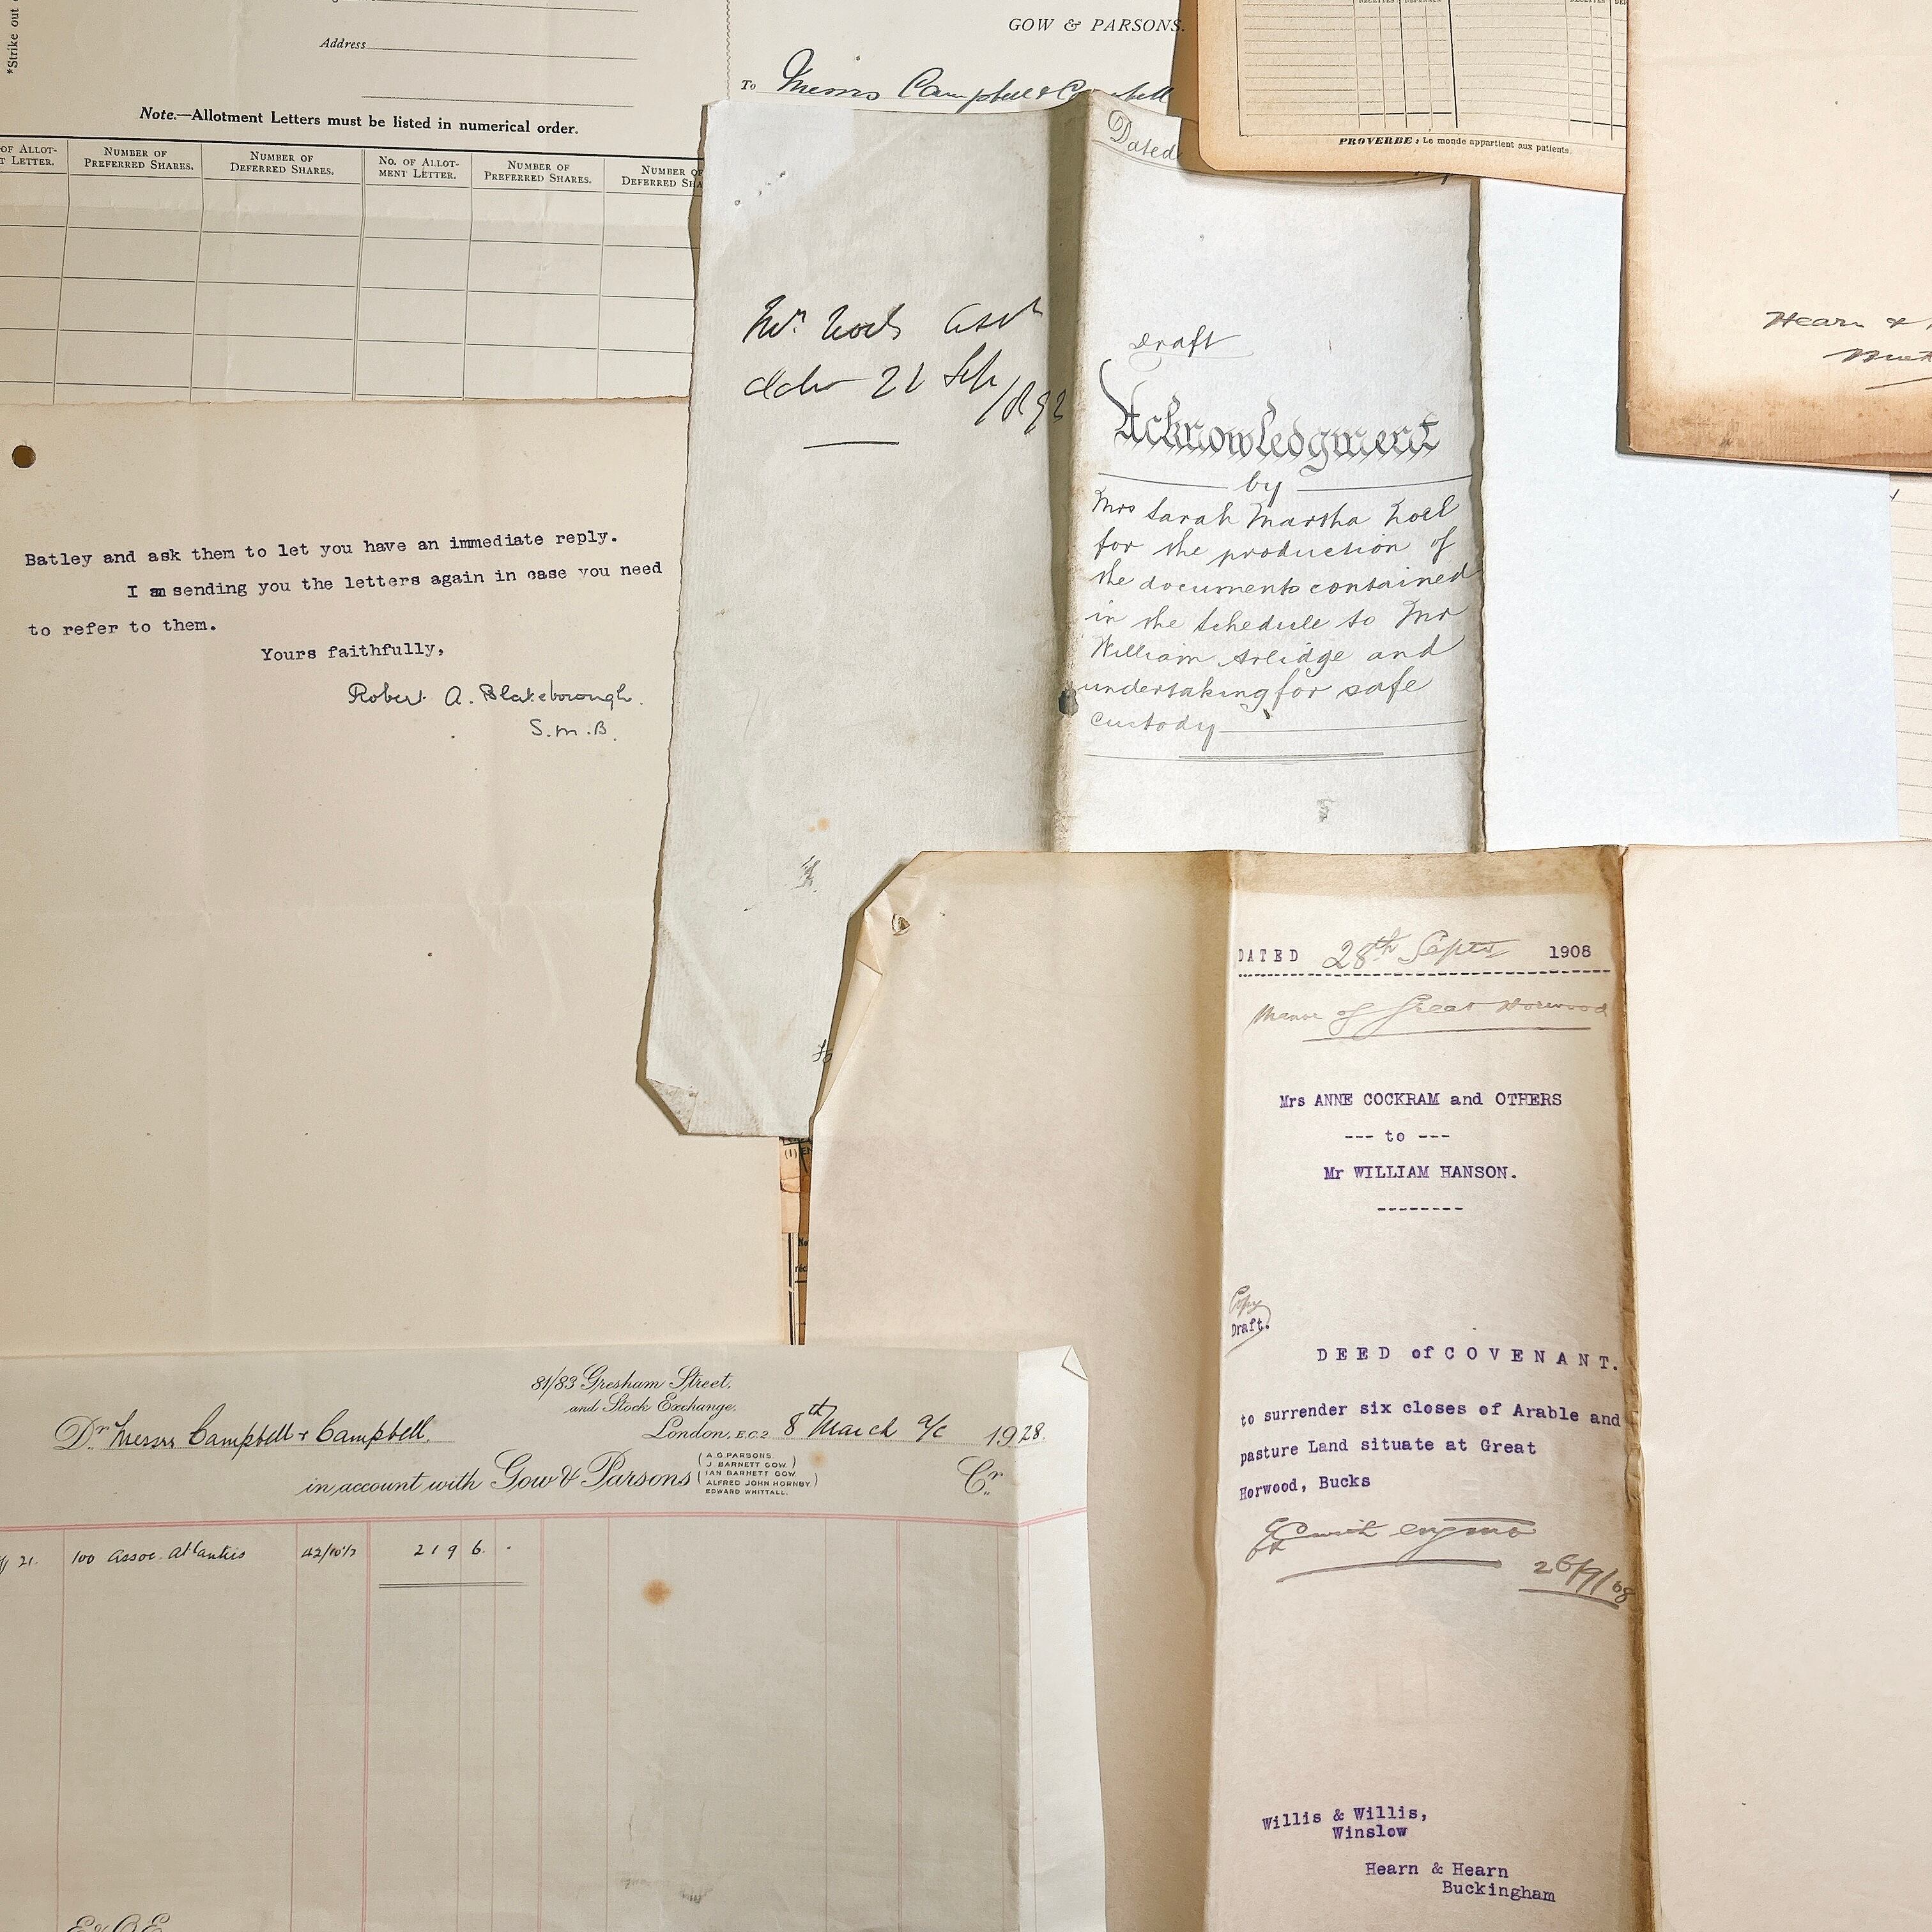 *Strike out
Address
Note.—Allotment Letters must be listed in numerical order.
OF ALLOT-
T LETTER.
NUMBER OF
PREFERRED SHARES.
NUMBER OF
DEFERRED SHARES.
NO. OF ALLOT-
MENT LETTER.
NUMBER OF
PREFERRED SHARES.
NUMBER OF
DEFERRED SHA
GOW & PARSONS.
To Messrs Campbell & Campbell
RECETTES
DEPENSES
RECETTES
PROVERBE : Le monde appartient aux patients.
Hearn &
21 Sep
1892
Dated
Draft
Acknowledgment
by
Mrs Sarah Martha
for the production of
the documents contained
in the Schedule to Mr
William Arlidge and
undertaking for safe
custody
Batley and ask them to let you have an immediate reply.
I am sending you the letters again in case you need
to refer to them.
Yours faithfully,
Robert A. Blakeborough.
S.M.B.
DATED 28th Septr 1908
Manor of Great Horwood
Mrs ANNE COCKRAM and OTHERS
--- to ---
Mr WILLIAM HANSON.
Copy
Draft.
DEED of COVENANT.
to surrender six closes of Arable and
pasture Land situate at Great
Horwood, Bucks
26/9/08
Willis & Willis,
Winslow
Hearn & Hearn
Buckingham
81/83 Gresham Street,
and Stock Exchange,
London, E.C.2. 8th March a/c 1928.
Dr. Messrs Campbell & Campbell.
in account with Gow & Parsons
A.G.PARSONS.
J. BARNETT GOW.
IAN BARNETT GOW
ALFRED JOHN HORNBY.
EDWARD WHITTALL.
Cr.
21. 100 Assoc. Atlantis 42/10½ 219 6 -
E & O E